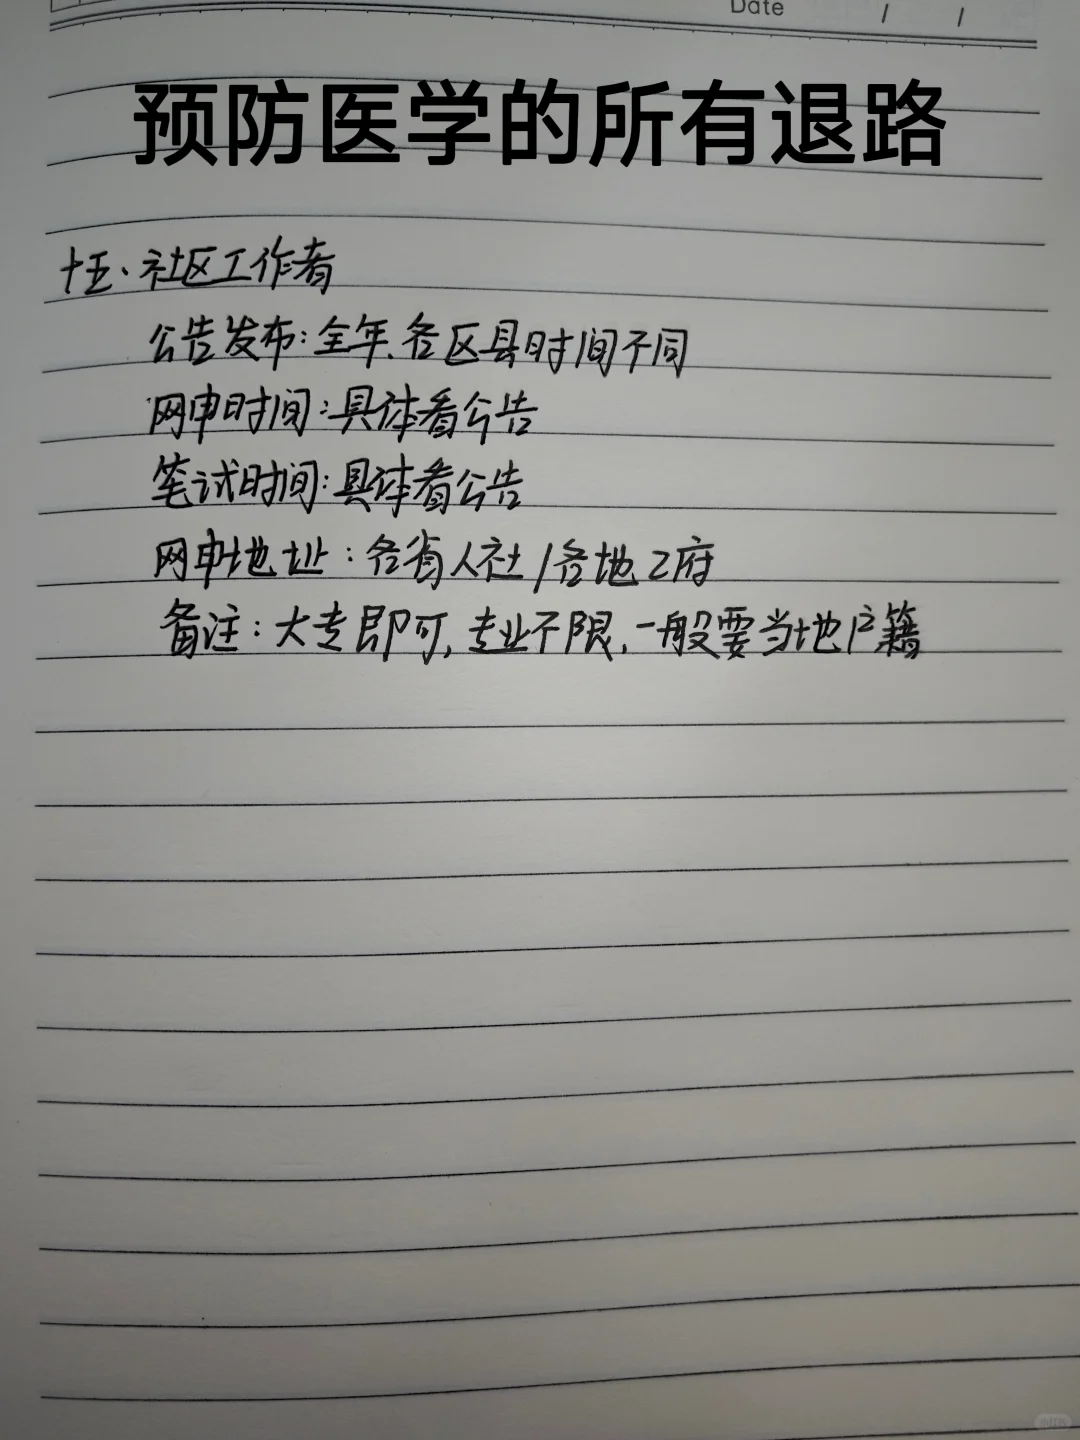 Date / /
预防医学的所有退路
十五、社区工作者
公告发布:全年、各区县时间不同
网申时间:具体看公告
笔试时间:具体看公告
网申地址:各省人社/各地Z府
备注:大专即可,专业不限,一般要当地户籍
小红书